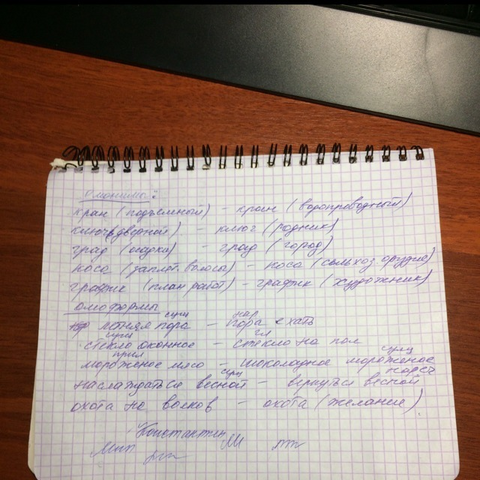 Омонимы:
кран (подъемный) - кран (водопроводный)
ключ (дверной) - ключ (родник)
град (осадки) - град (город)
коса (заплет. волосы) - коса (сельхоз орудие)
график (план работ) - график (художник)
омоформы
сущ нар
летняя пора - пора ехать
сущ гл
стекло оконное - стекло на пол
прил сущ
мороженое мясо - шоколадное мороженое
сущ нареч
наслаждаться весной - вернуться весной
охота на волков - охота (желание)
Константин